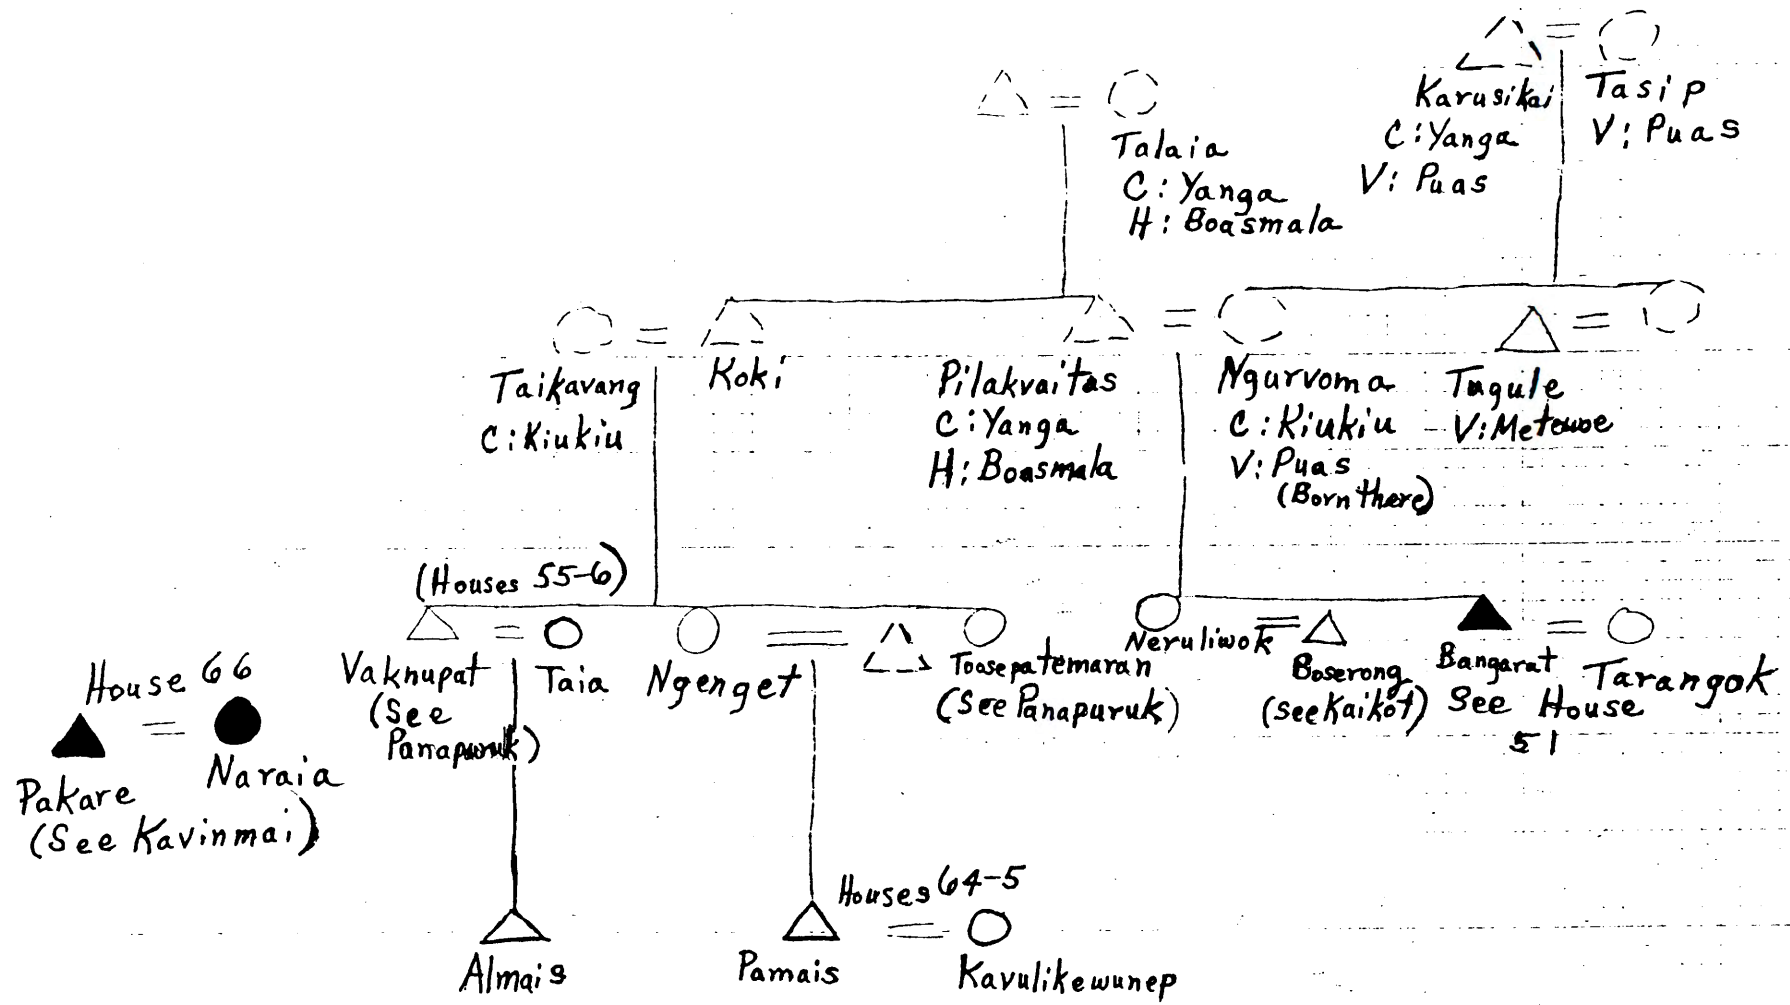 Karusikai
C: Yanga
V: Puas
Tasip
V: Puas
Talaia
C: Yanga
H: Boasmala
Taikavang
C: Kiukiu
Koki
Pilakvaitas
C: Yanga
H: Boasmala
Ngurvoma
C: Kiukiu
V: Puas
(Born there)
Tugule
V: Metewoe
(Houses 55-6)
Vaknupat
(See
Panapuruk)
Taia
Ngenget
Toosepatemaran
(See Panapuruk)
Neruliwok
Boserong
(see Kaikot)
Bangarat
See House
51
Tarangok
House 66
Pakare
(See Kavinmai)
Naraia
Almais
Houses 64-5
Pamais
Kavulikewunep